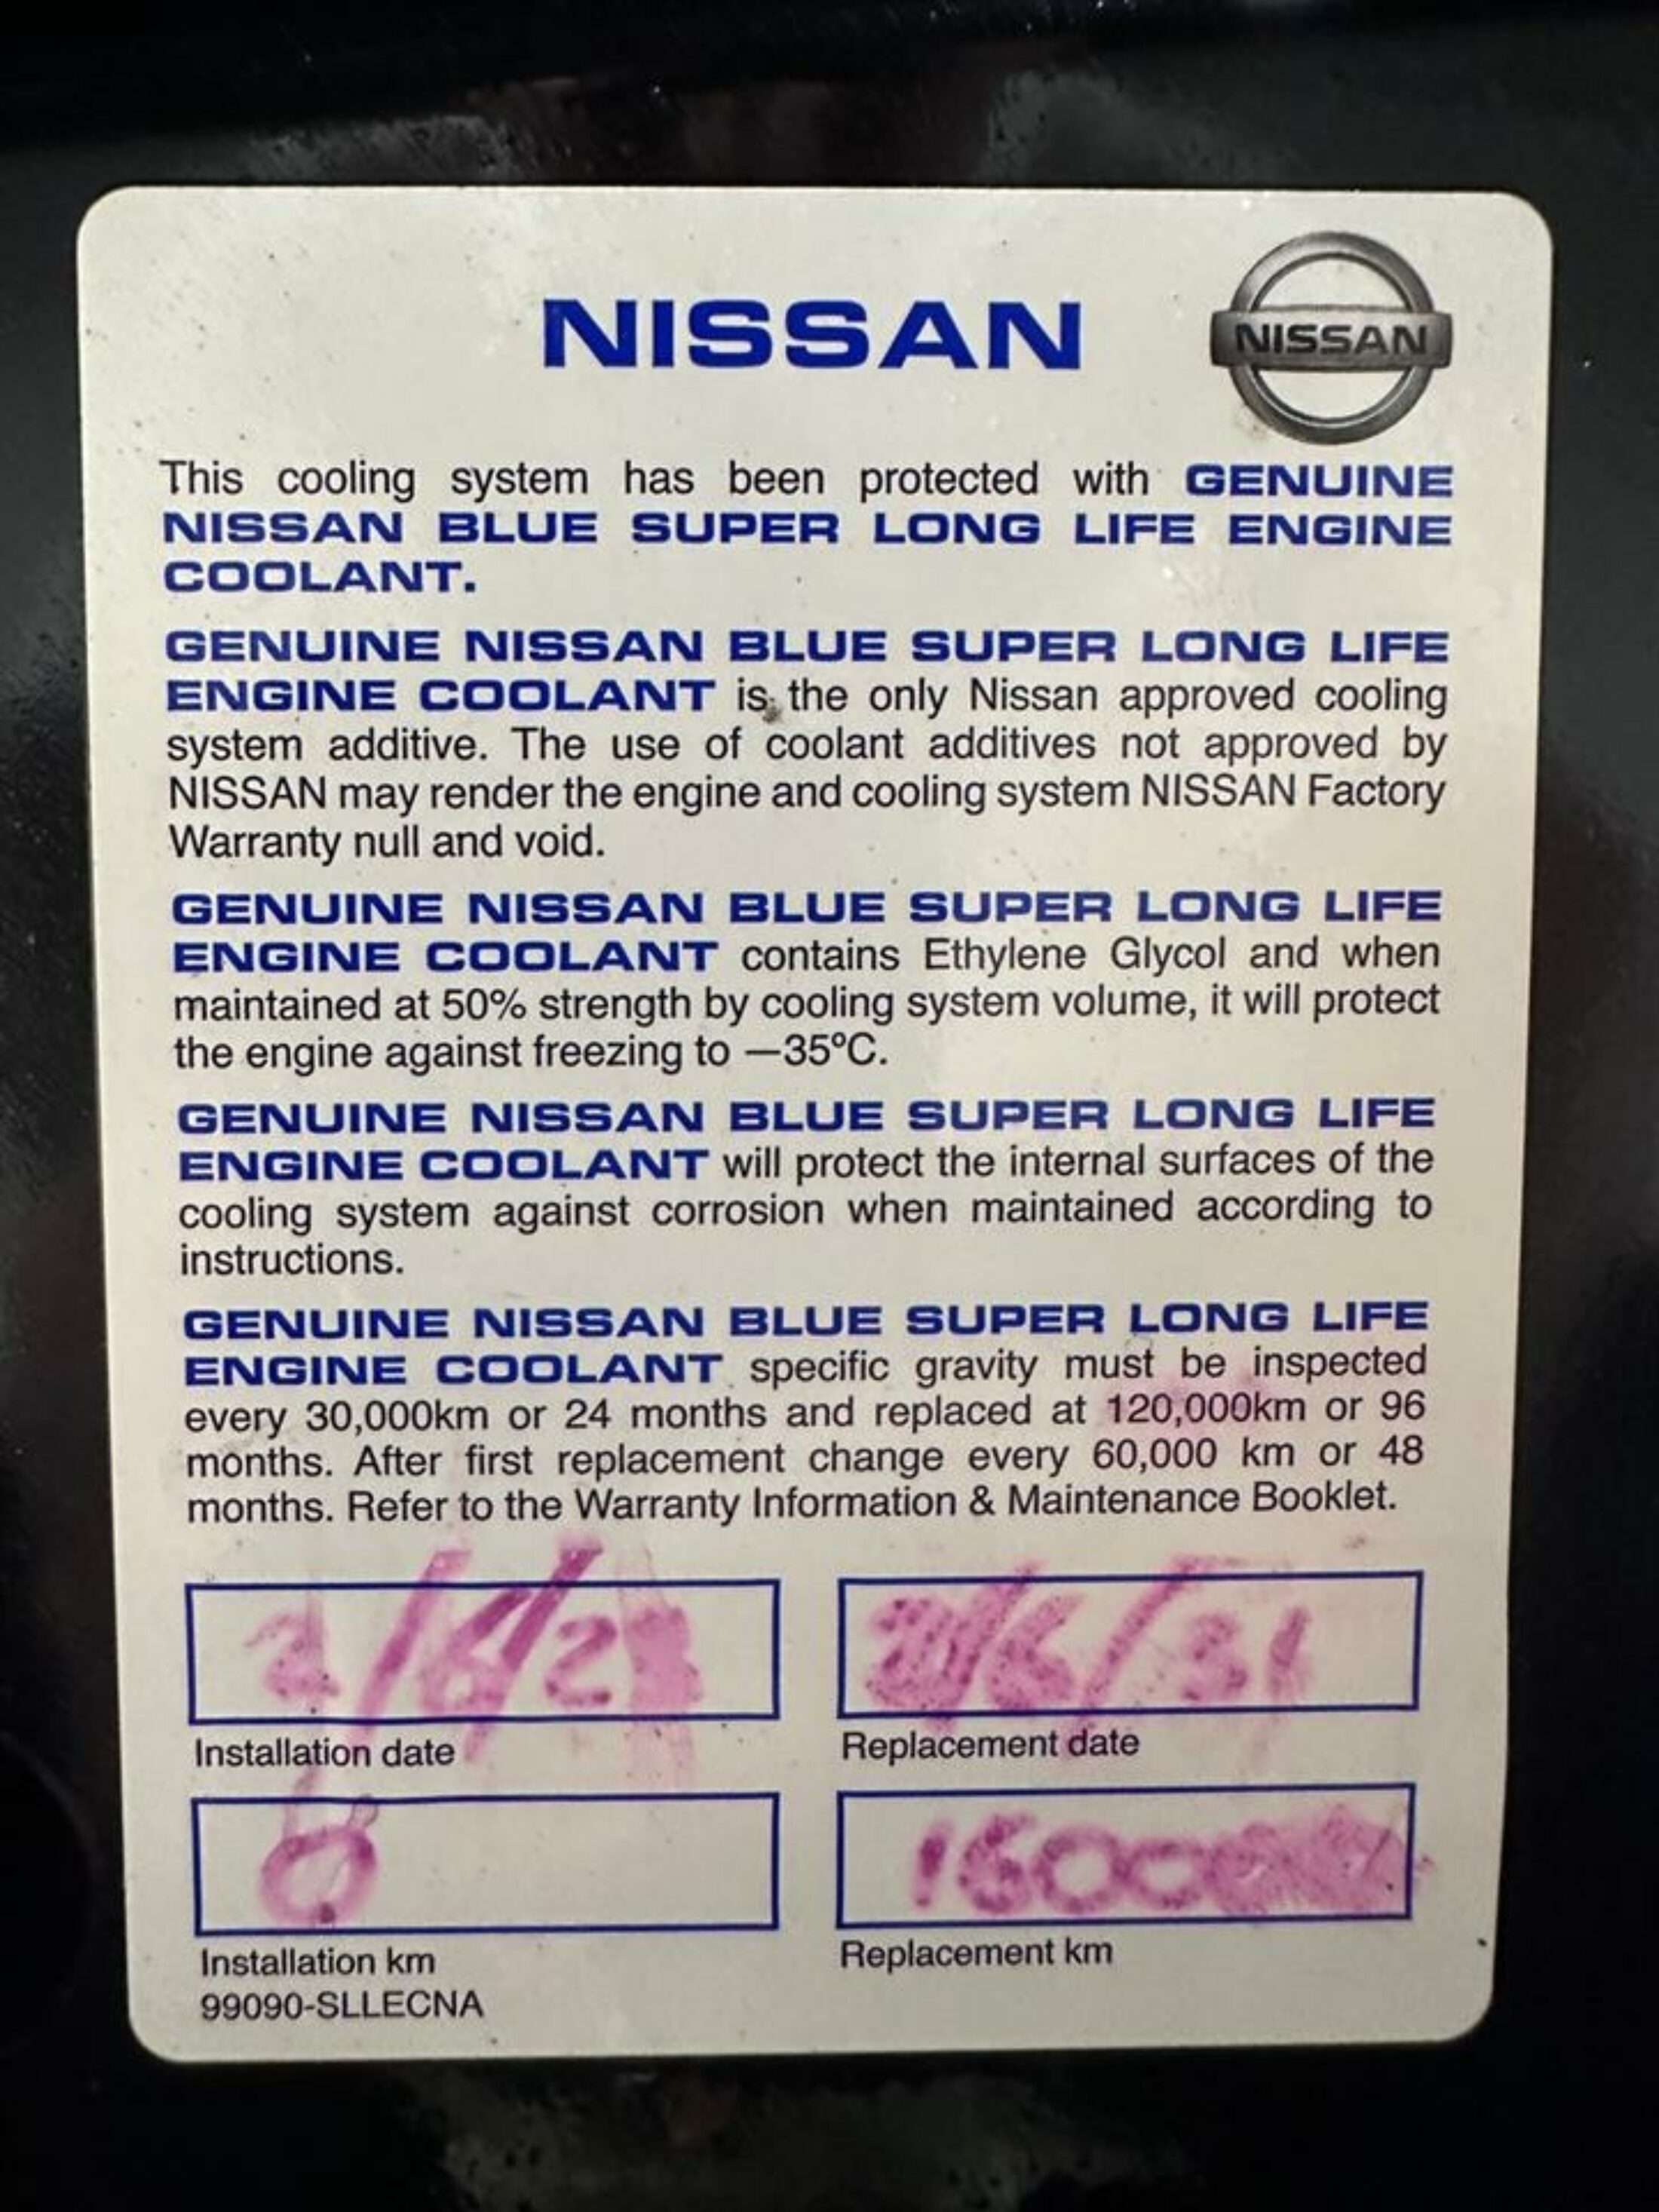 NISSAN
NISSAN
This cooling system has been protected with GENUINE
NISSAN BLUE SUPER LONG LIFE ENGINE
COOLANT.
GENUINE NISSAN BLUE SUPER LONG LIFE
ENGINE COOLANT is the only Nissan approved cooling
system additive. The use of coolant additives not approved by
NISSAN may render the engine and cooling system NISSAN Factory
Warranty null and void.
GENUINE NISSAN BLUE SUPER LONG LIFE
ENGINE COOLANT contains Ethylene Glycol and when
maintained at 50% strength by cooling system volume, it will protect
the engine against freezing to –35°C.
GENUINE NISSAN BLUE SUPER LONG LIFE
ENGINE COOLANT will protect the internal surfaces of the
cooling system against corrosion when maintained according to
instructions.
GENUINE NISSAN BLUE SUPER LONG LIFE
ENGINE COOLANT specific gravity must be inspected
every 30,000km or 24 months and replaced at 120,000km or 96
months. After first replacement change every 60,000 km or 48
months. Refer to the Warranty Information & Maintenance Booklet.
Installation date
Replacement date
0
Installation km
Replacement km
99090-SLLECNA